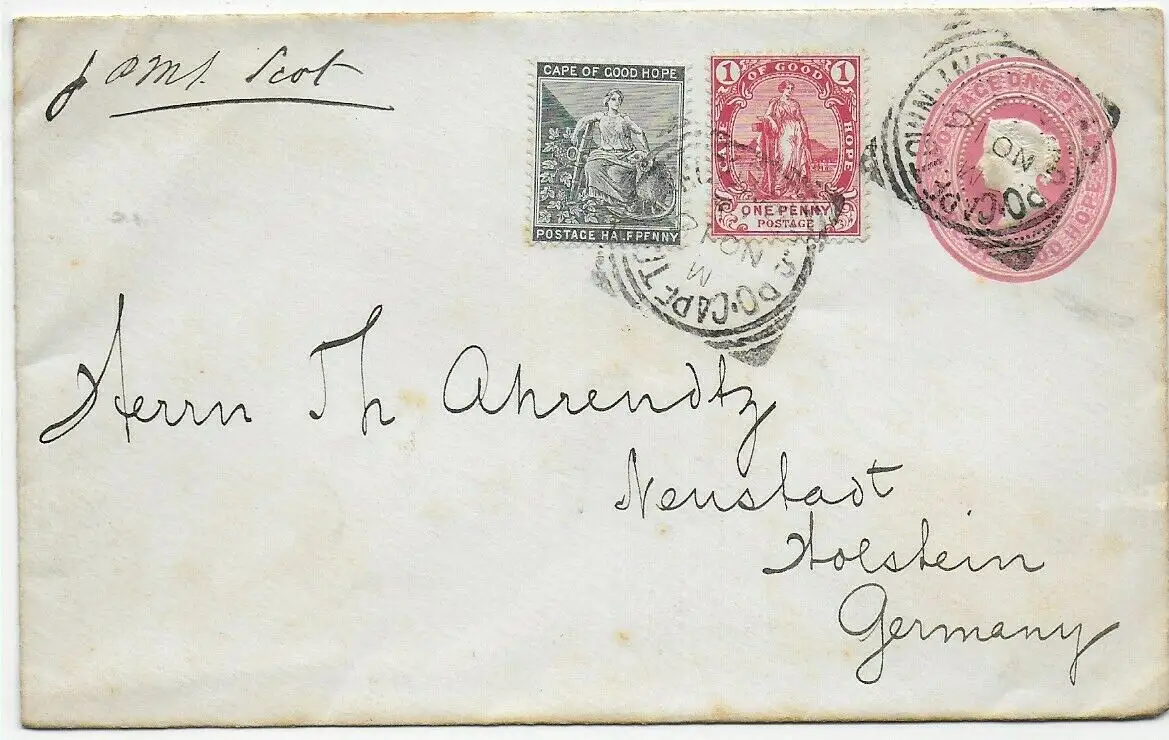 p RMS. Scot
CAPE OF GOOD HOPE
POSTAGE HALFPENNY
1 OF GOOD 1
CAPE HOPE
ONE PENNY
POSTAGE
POSTAGE ONE PENNY
HOPE
G.P.O. CAPE TOWN
NO
G.P.O. CAPE TOWN
NO
Herrn Th Ahrendtz
Neustadt
Holstein
Germany